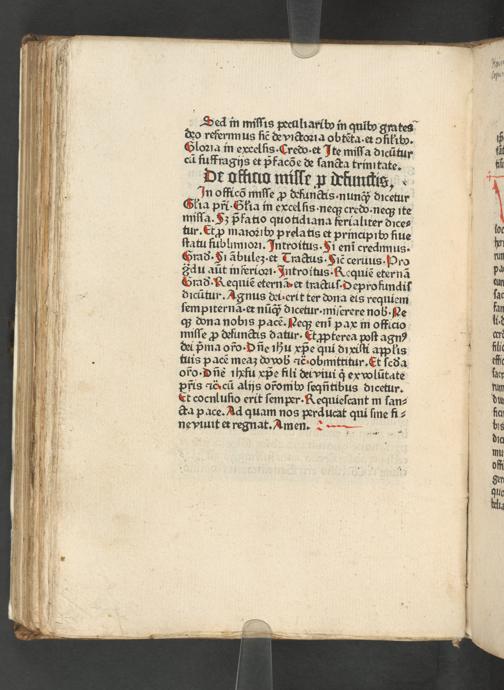 Sed in missis peculiarib9 in quib9 grates
deo referimus sic̄ de victoria obtēta·et ↄsilib9.
Gloria in excelsis·Credo·et Ite missa dicūtur
cū suffragijs et p̄facōe de sancta trinitate.
De officio misse p̱ defunctis,
In officō misse p̱ defunctis·nunqȝ dicetur
Gl̄ia pr̄i·Gl̄ia in excelsis·neqȝ credo·neqȝ ite
missa. Sȝ p̄fatio quotidiana ferialiter dice⸗
tur. Et p̱ maiorib9 prelatis et principib9 siue
statu sublimiori. Introitus·Si eni credimus·
Grad·Si ābulez·et Tractus·Sic̄ ceruus·Pro
gͣdu aūt inferiori·Introitus·Requiē eternā
Grad·Requiē eternā·et tractus·De profundis
dicūtur. Agnus dei·erit ter dona eis requiem
sempiternā·et nūqȝ dicetur·miserere nob·Ne
qȝ dona nobis pacē·Neqȝ eni pax in officio
misse p̱ defunctis datur·Et p̱pterea post agn9
dei p̄ma or̄o·Dn̄e ih̄u xp̄e qui dixisti ap̄lis
tuis pacē meaȝ do vob ⁊c̄·obmittitur. Et sc̄da
or̄o·Dn̄e ih̄u xp̄e fili dei viui q̄ ex volūtate
pr̄is ⁊c̄·cū alijs or̄onib9 seqn̄tibus dicetur.
Et cōclusio erit semper·Requiescant in san⸗
cta pace. Ad quam nos perducat qui sine fi⸗
ne viuit et regnat. Amen.